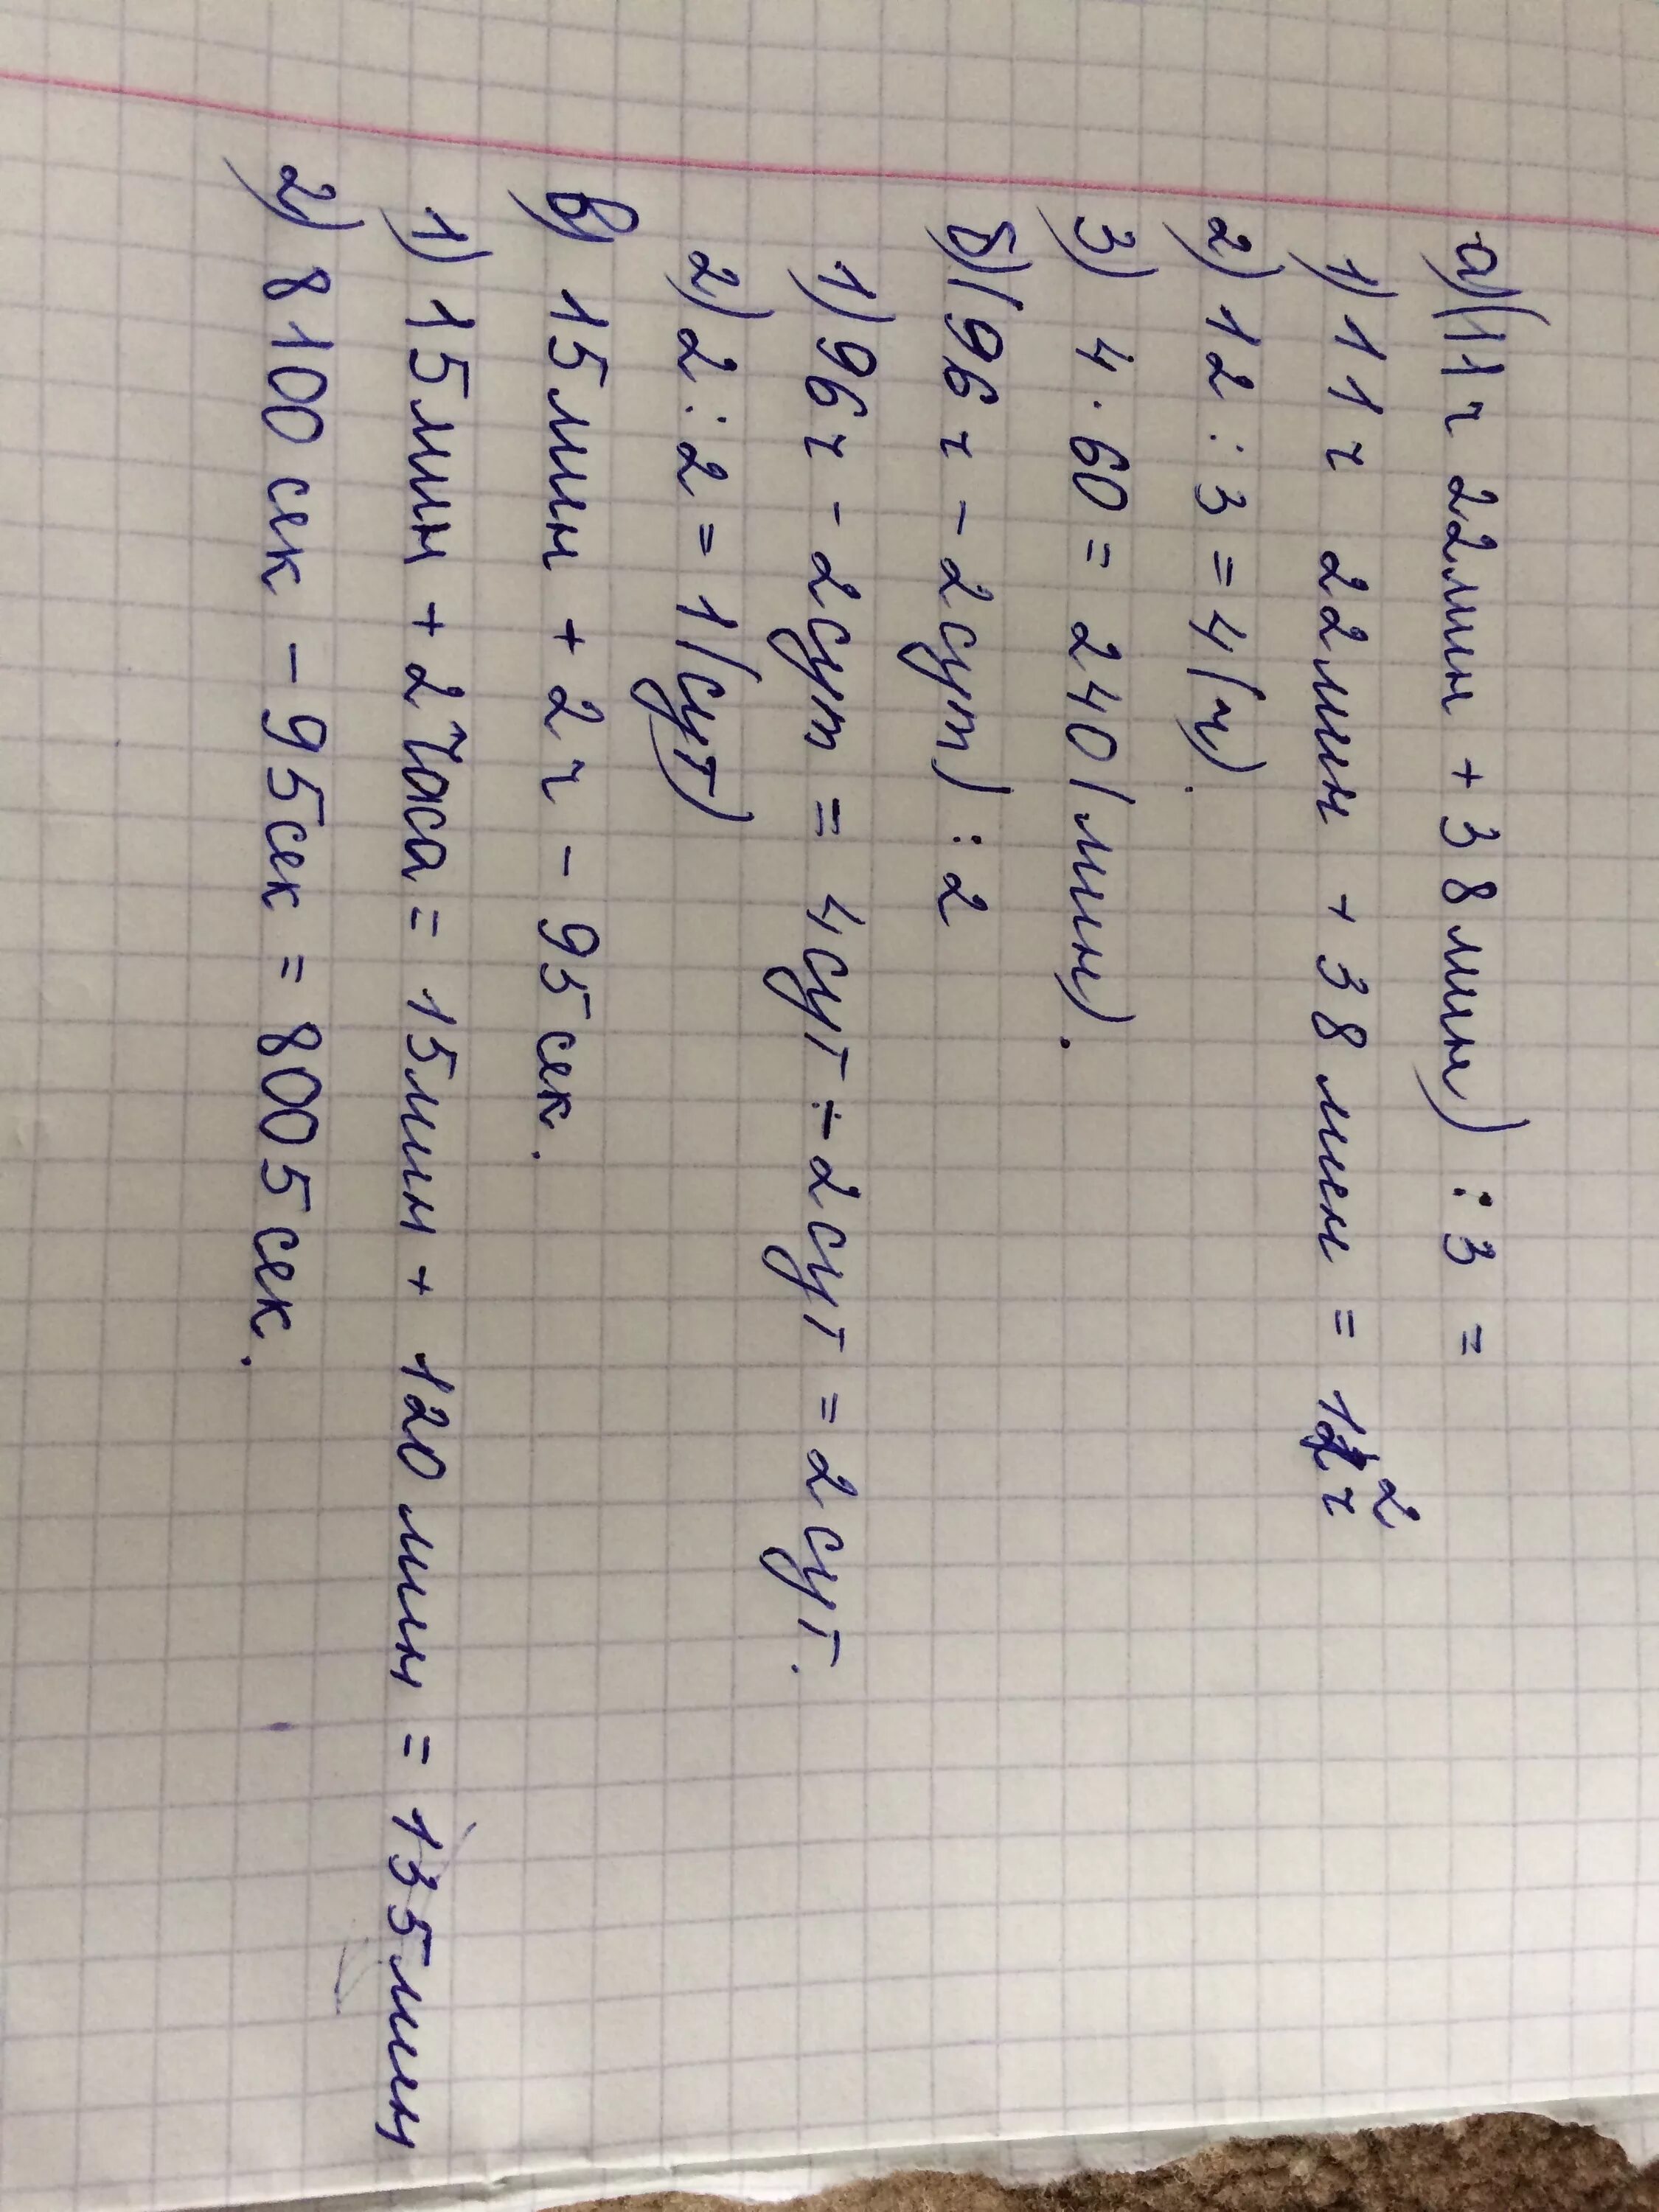 а) (11 ч 22мин + 38мин) : 3 =
1) 11 ч 22мин + 38 мин = 12 ч
2) 12 : 3 = 4 (ч).
3) 4 · 60 = 240 (мин).
б) (96 ч - 2сут) : 2
1) 96 ч - 2сут = 4сут - 2сут = 2сут.
2) 2 : 2 = 1 (сут)
в) 15мин + 2 ч - 95сек.
1) 15мин + 2 часа = 15мин + 120 мин = 135мин
2) 8100 сек - 95сек = 8005сек.